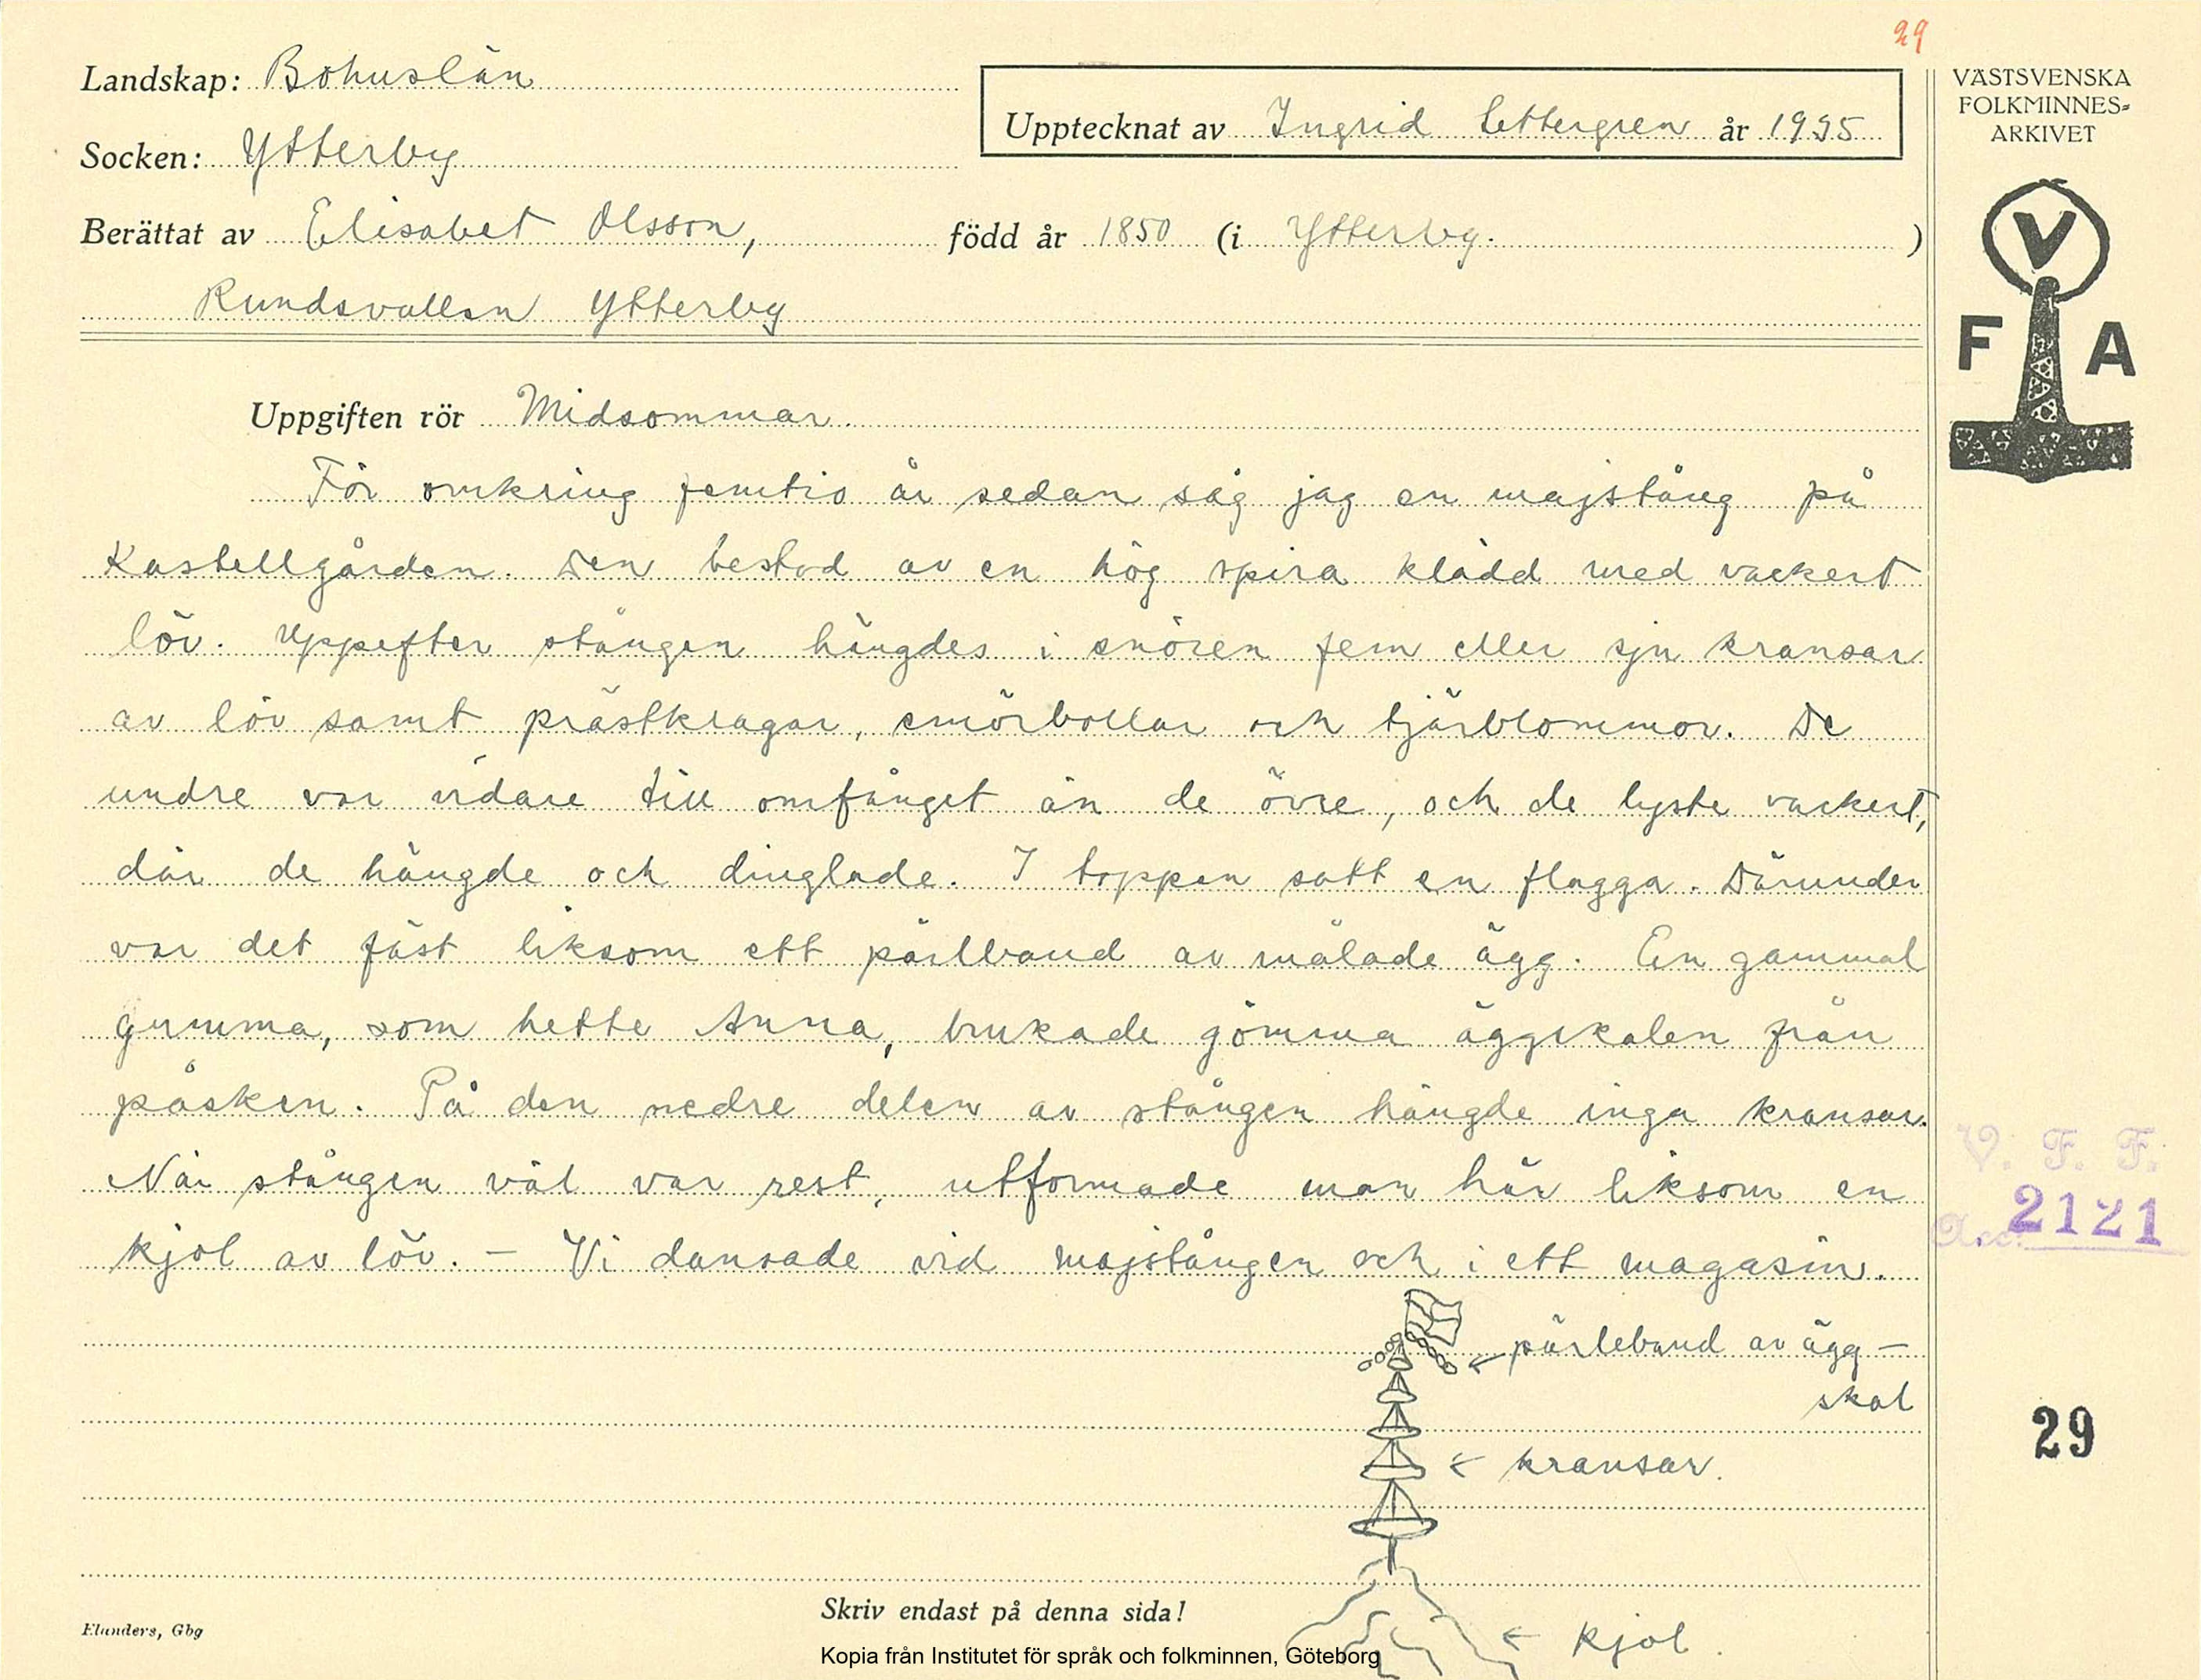 29
Landskap: Bohuslän
Socken: Ytterby
Upptecknat av Ingrid Settergren år 19
VÄSTSVENSKA
FOLKMINNES-
ARKIVET
Berättat av Elisabet Olsson, född år 1850 (i Ytterby.)
Ytterby
V
F A
Uppgiften rör Midsommar.
För omkring femtio år sedan såg jag en majstång på
Kastellgården. Den bestod av en hög spira klädd med vackert
löv. Uppefter stången hängdes i snören fem eller sju kransar
av löv samt prästkragar, smörbollar och tjärblommor. De
undre var vidare till omfånget än de övre, och de lyste vackert,
där de hängde och dinglade. I toppen satt en flagga. Därunder
var det fäst liksom ett pärlband av målade ägg. En gammal
gumma, som hette Anna, brukade gömma äggskalen från
påsken. På den nedre delen av stången hängde inga kransar.
När stången väl var rest, utformade man här liksom en
kjol av löv. – Vi dansade vid majstången och i ett magasin.
V. F. F.
Acc. 2121
pärleband av ägg-
skal
29
kransar.
kjol.
Skriv endast på denna sida!
Elanders, Gbg
Kopia från Institutet för språk och folkminnen, Göteborg